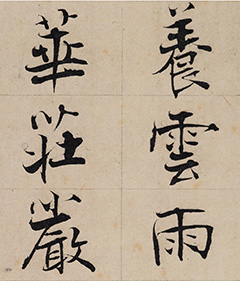 養雲雨
華莊嚴